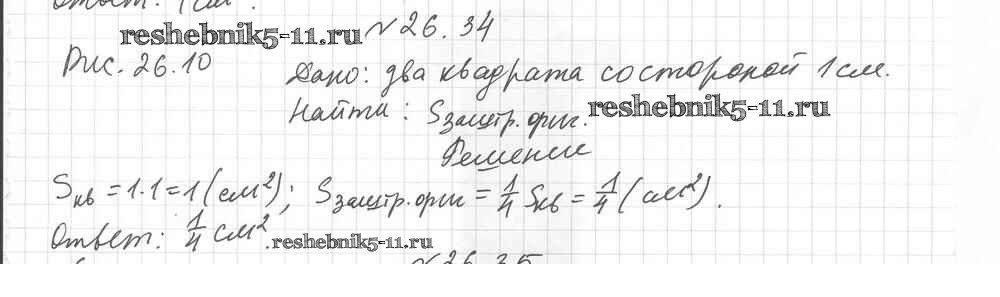 Ответ: 1 см².
reshebnik5-11.ru №26.34
Рис. 26.10 Дано: два квадрата со стороной 1 см.
Найти: Sзаштр. фиг. reshebnik5-11.ru
Решение
Sкв = 1·1 = 1 (см²); Sзаштр. фиг = 1/4 Sкв = 1/4 (см²).
Ответ: 1/4 см². reshebnik5-11.ru
№26.35